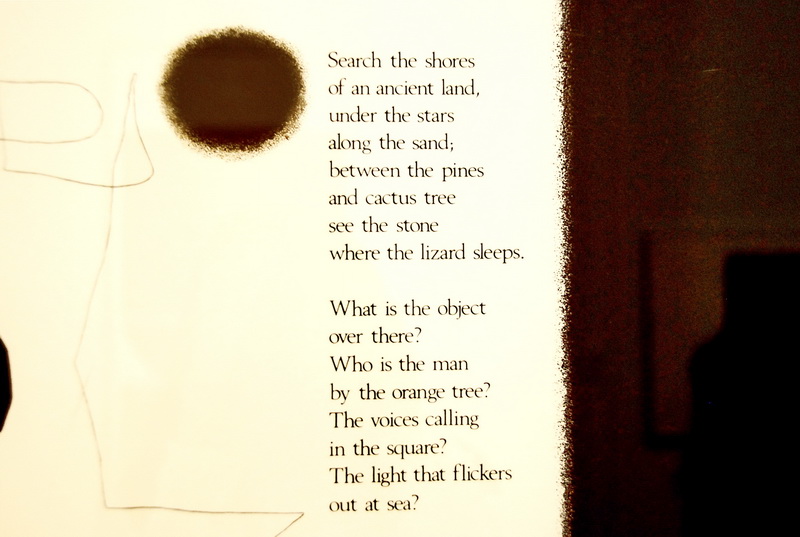 Search the shores
of an ancient land,
under the stars
along the sand;
between the pines
and cactus tree
see the stone
where the lizard sleeps.
What is the object
over there?
Who is the man
by the orange tree?
The voices calling
in the square?
The light that flickers
out at sea?